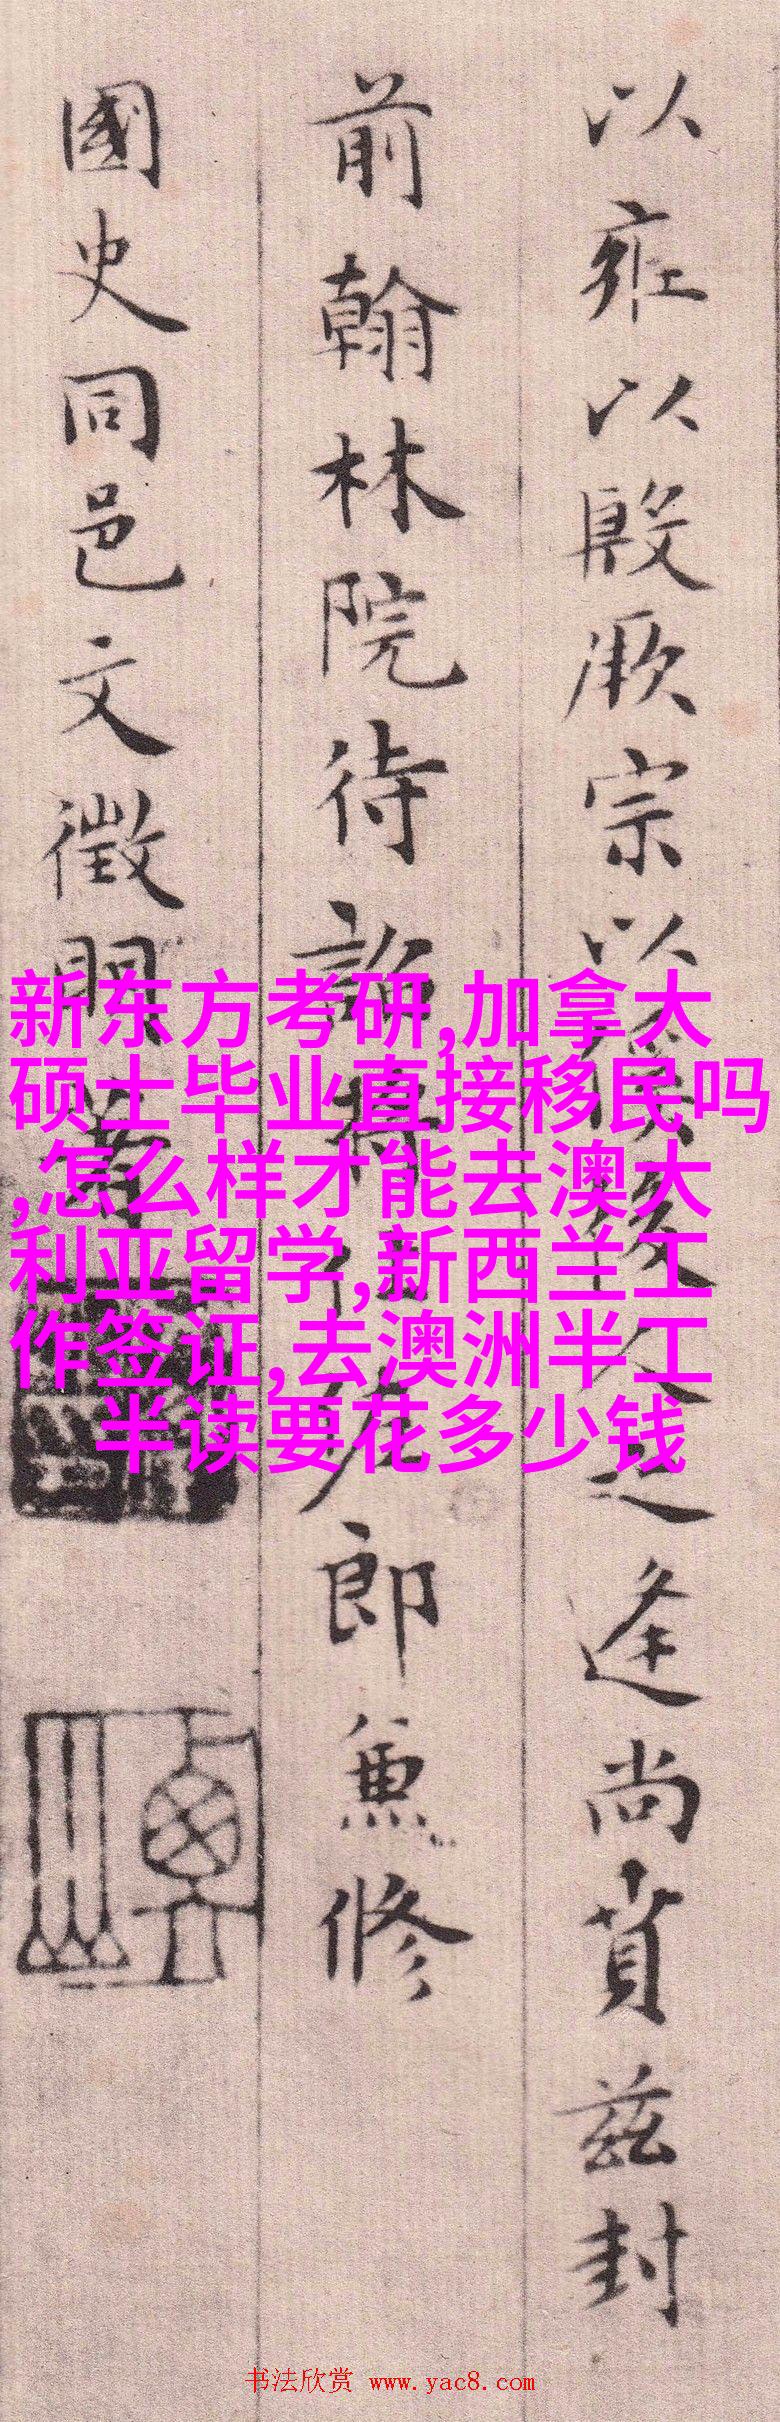 以雍以殷厥宗以
逢尚賁兹封
前翰林院待詔將仕佐郎兼修
國史同邑文徵明書
新东方考研,加拿大
硕士毕业直接移民吗
,怎么样才能去澳大
利亚留学,新西兰工
作签证,去澳洲半工
半读要花多少钱
书法欣赏 www.yac8.com